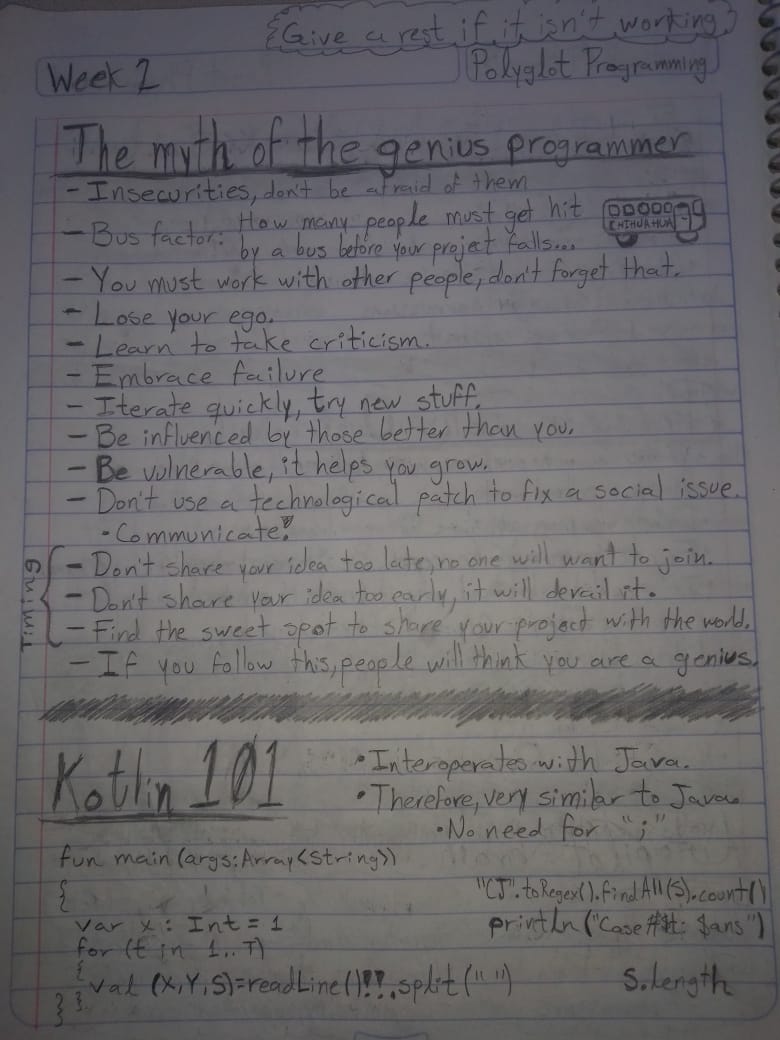 Give a rest if it isn't working
Week 2
Polyglot Programming
The myth of the genius programmer
- Insecurities, don't be afraid of them
- Bus factor: How many people must get hit
by a bus before your project falls...
CHIHUAHUA
- You must work with other people, don't forget that.
- Lose your ego.
- Learn to take criticism.
- Embrace failure
- Iterate quickly, try new stuff.
- Be influenced by those better than you.
- Be vulnerable, it helps you grow.
- Don't use a technological patch to fix a social issue.
• Communicate!
Timing
- Don't share your idea too late, no one will want to join.
- Don't share your idea too early, it will derail it.
- Find the sweet spot to share your project with the world.
- If you follow this, people will think you are a genius.
Kotlin 101
• Interoperates with Java.
• Therefore, very similar to Java.
• No need for ";"
fun main (args:Array<String>)
{
var x : Int = 1
for (t in 1..T)
{
val (X,Y,S)=readLine()!!.split(" ")
}
}
"CJ".toRegex().findAll(S).count()
println("Case #$t: $ans")
S.length